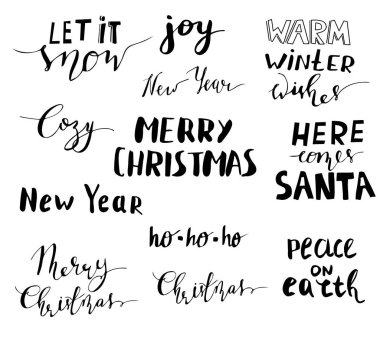 LET iT
snow
joy
WARM
WiNTER
wishes
New Year
Cozy
MERRY
CHRISTMAS
HERE
comes
SANTA
New Year
ho-ho-ho
Merry
Christmas
Christmas
peace
ON
earth